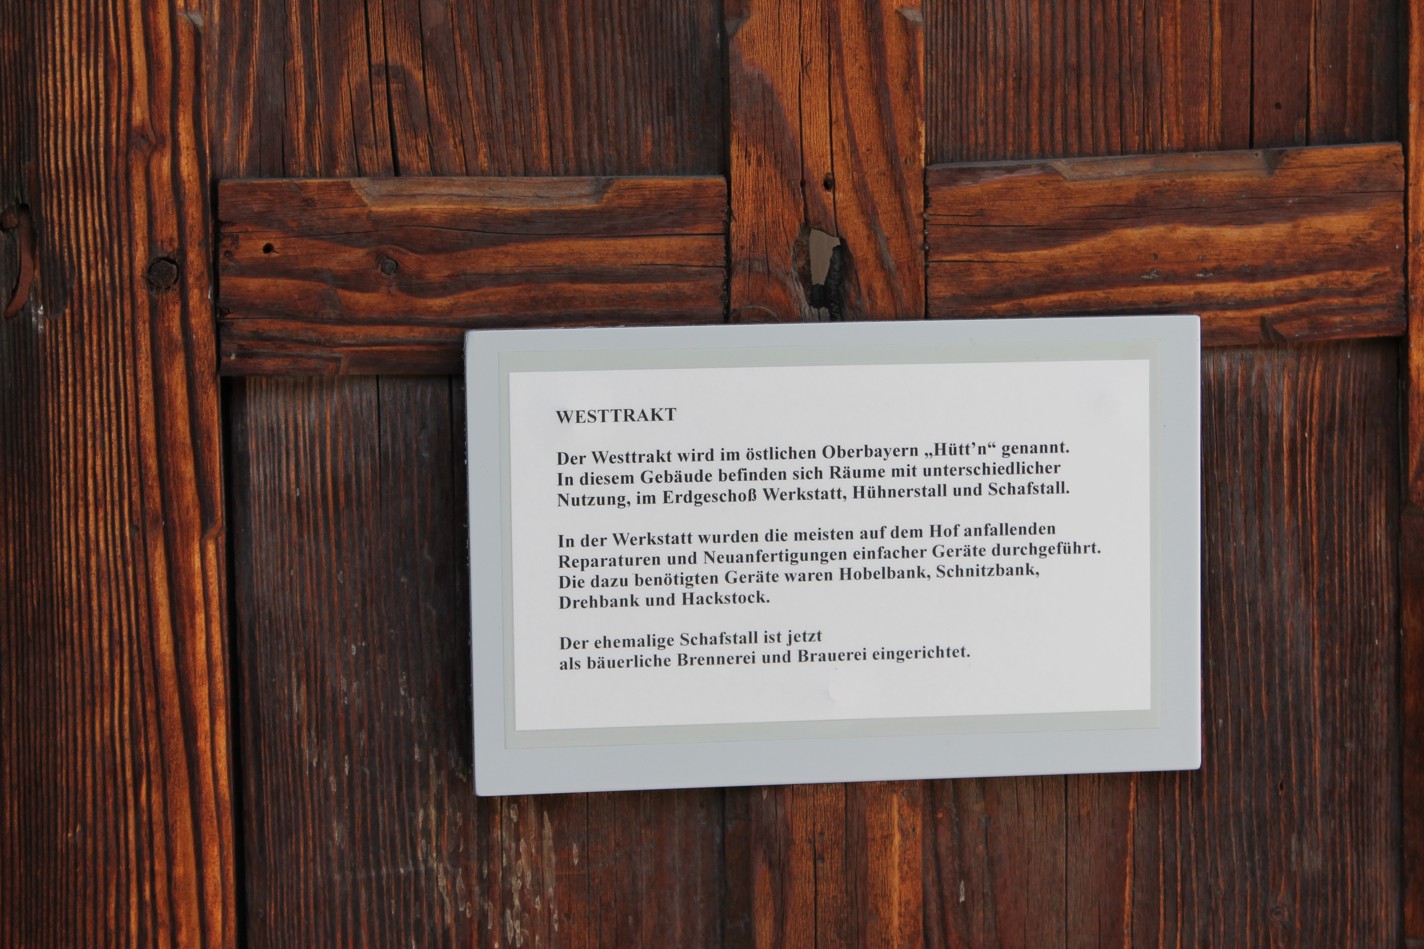 WESTTRAKT
Der Westtrakt wird im östlichen Oberbayern „Hütt’n“ genannt.
In diesem Gebäude befinden sich Räume mit unterschiedlicher
Nutzung, im Erdgeschoß Werkstatt, Hühnerstall und Schafstall.
In der Werkstatt wurden die meisten auf dem Hof anfallenden
Reparaturen und Neuanfertigungen einfacher Geräte durchgeführt.
Die dazu benötigten Geräte waren Hobelbank, Schnitzbank,
Drehbank und Hackstock.
Der ehemalige Schafstall ist jetzt
als bäuerliche Brennerei und Brauerei eingerichtet.